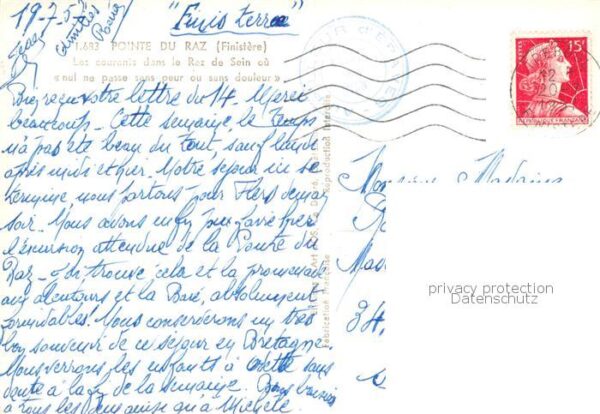 19-7-5
"Finis terrae"
amitiés
1.682 POINTE DU RAZ (Finistère)
Les courants dans le Raz de Sein où
«nul ne passe sans peur ou sans douleur»
Bien reçu votre lettre du 14. Merci
beaucoup. Cette semaine, le temps
n'a pas été beau du tout, sauf lundi
après midi et hier. Notre séjour ici se
termine, nous partons pour Flers demain
soir. Nous avons enfin pu faire hier
l'excursion attendue de la Pointe du
Raz. J'ai trouvé cela et la promenade
aux alentours et la Baie, absolument
formidables! Nous conserverons un très
bon souvenir de ce séjour en Bretagne.
Nous verrons les enfants à sans
doute à la fin de la semaine. Bons baisers
à tous les deux ainsi qu'à Michèle.
Reproduction Interdite
Fabrication Française
Monsieur Madame
34,
15F
privacy protection
Datenschutz